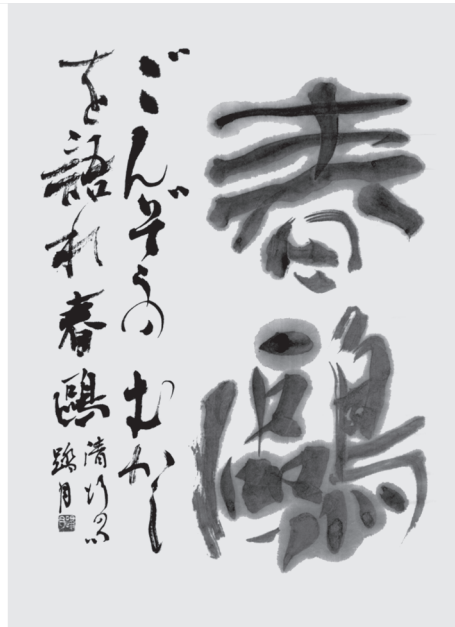 春鷗
ごんぞうの むかし
を語れ春鷗